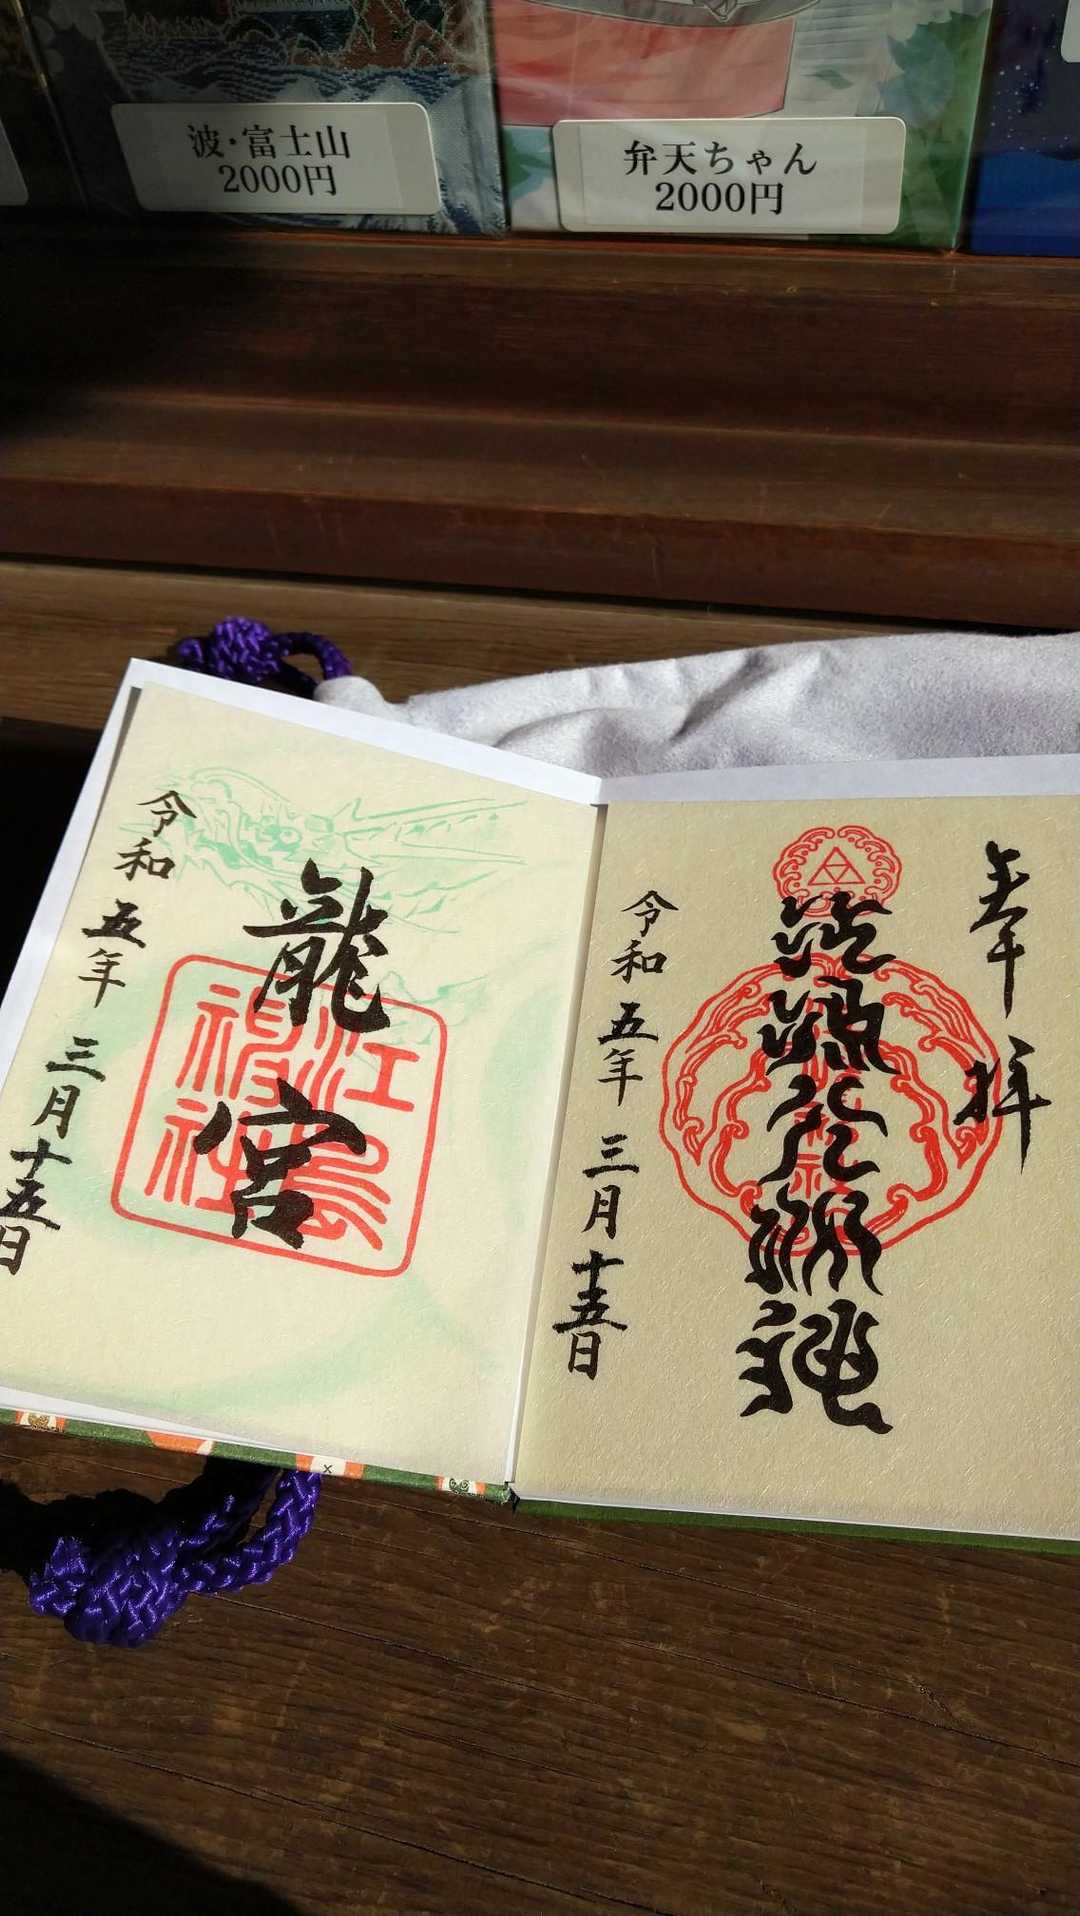 波・富士山
2000円
弁天ちゃん
2000円
奉拝
江島大明神
令和五年三月十五日
龍宮
江島神社
令和五年三月十五日